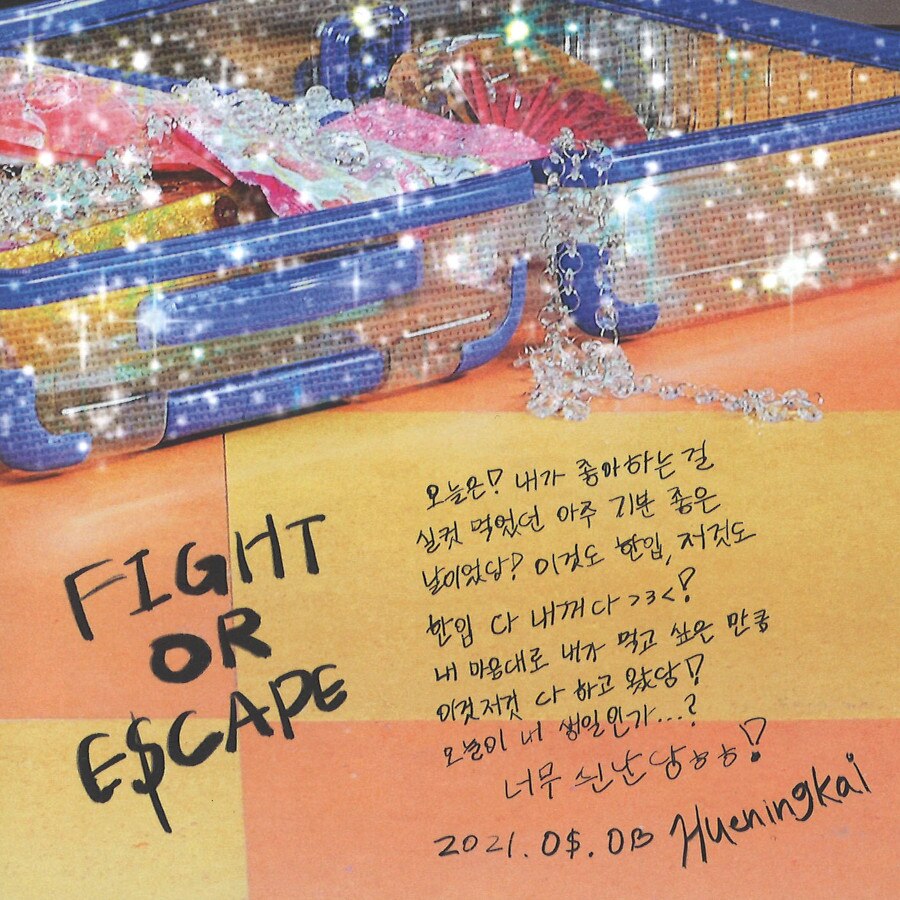 FIGHT
OR
E$CAPE
오늘은! 내가 좋아하는 걸
실컷 먹었던 아주 기분 좋은
날이었당! 이것도 한입, 저것도
한입 다 내꺼다 >3<!
내 마음대로 내가 먹고 싶은 만큼
이것저것 다 하고 왔당!
오늘이 내 생일인가...?
너무 신난당ㅎㅎ!
2021. 0$. 0B Hueningkai